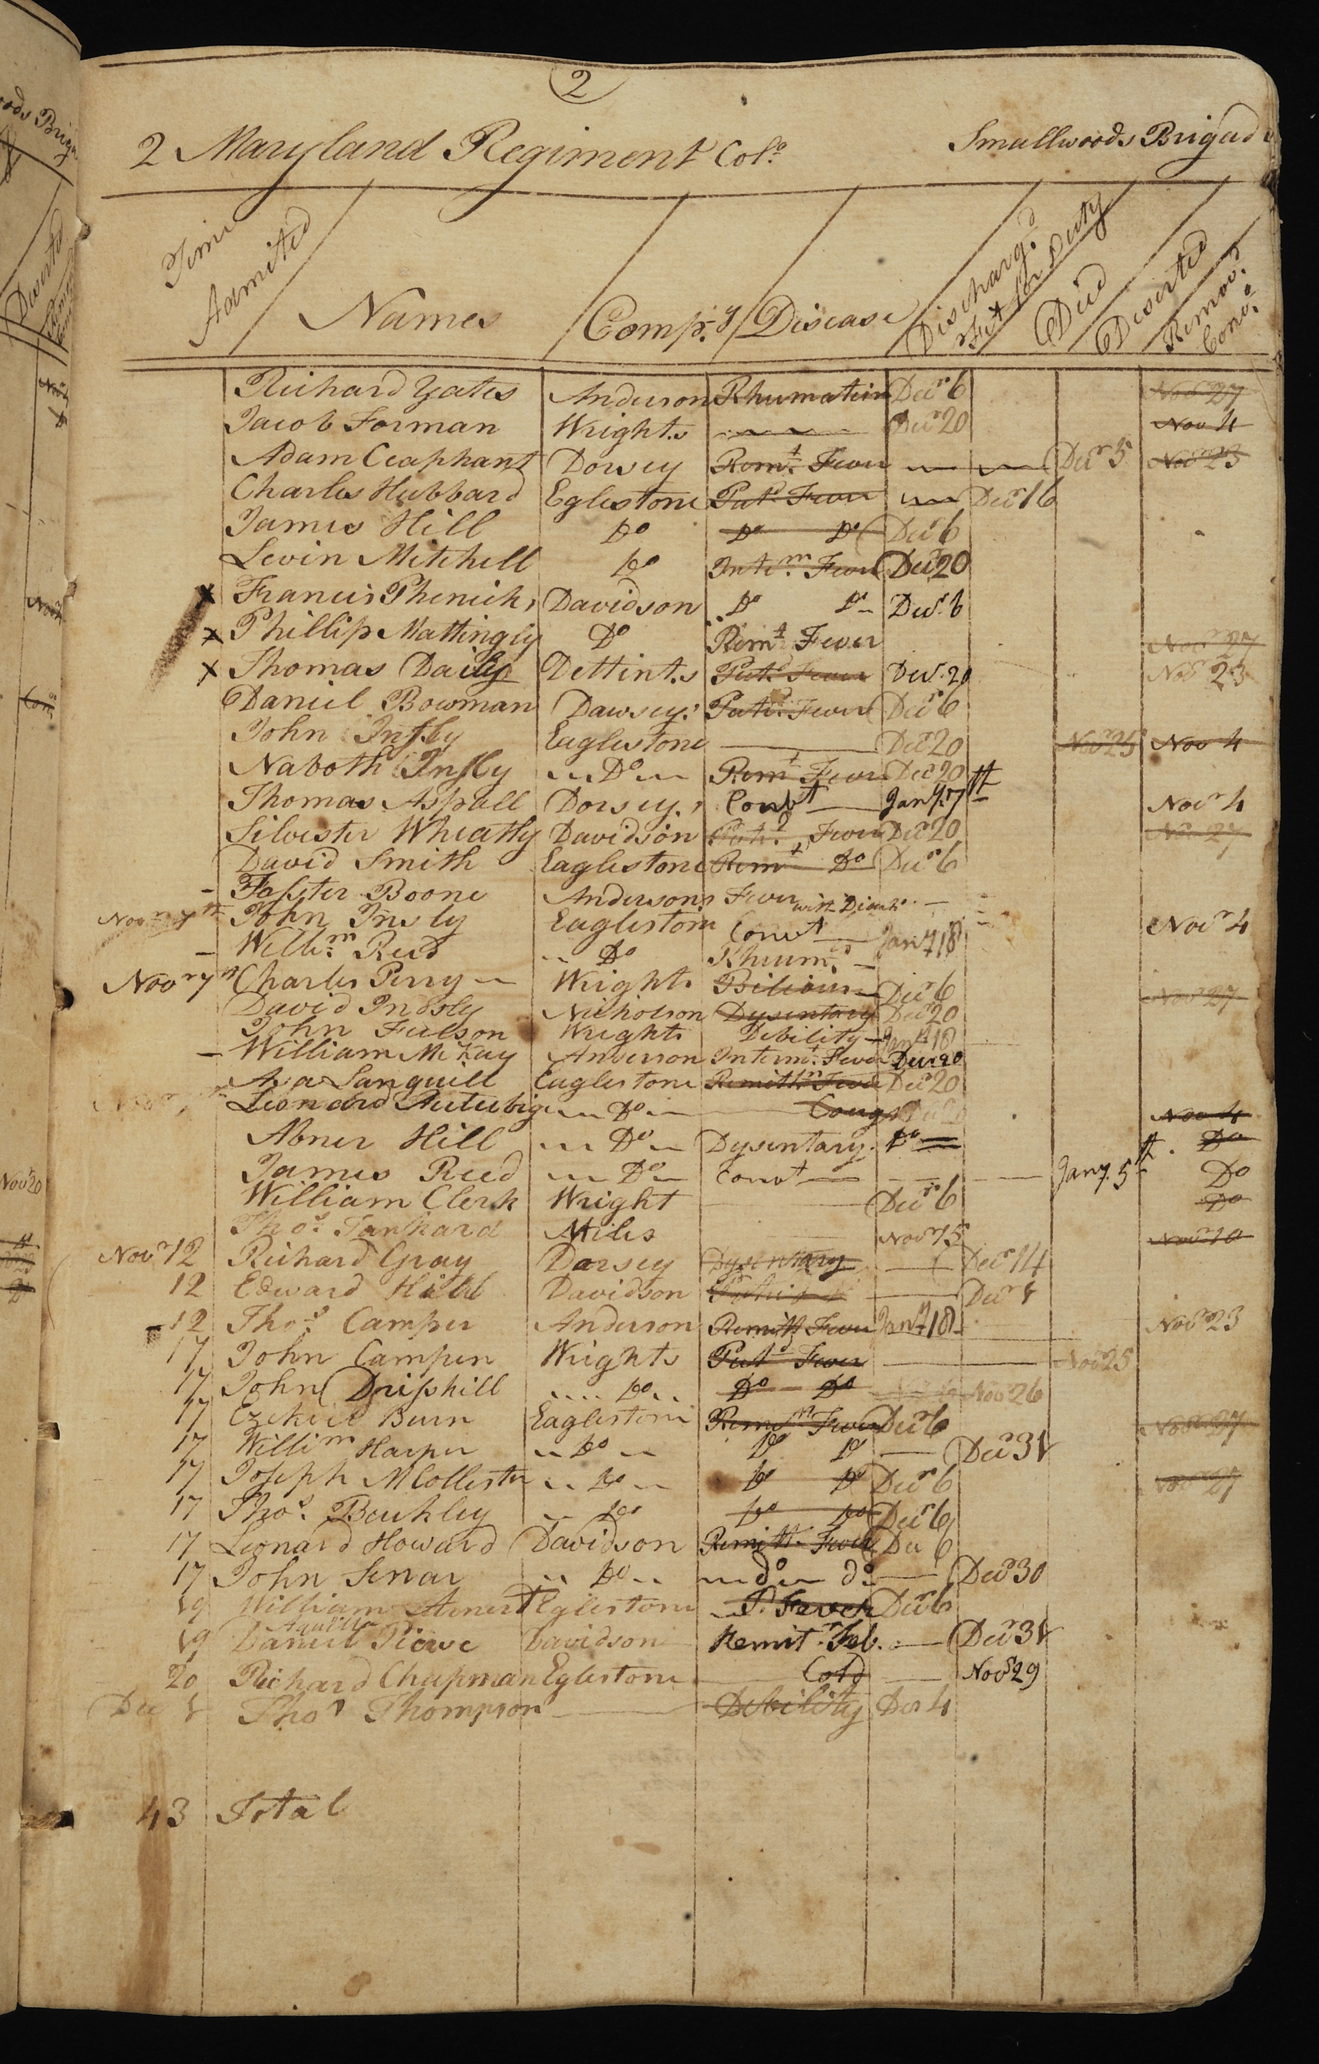 2
2 Maryland Regiment Colo
Smallwoods Brigade
Time Admited
Names
Comp.y
Disease
Discharg.d & Fit for Duty
Died
Deserted
Remov.d Conv.t
Richard Yates Anderson Rhumatism Decr 6 Novr 27
Jacob Forman Wright.s Decr 20 Nov 4
Adam Ceaphant Dorsey Remt. Fever Decr 5 Nov 23
Charles Hubbard Eglestone Putd Fever Decr 16
James Hill Do Do Do Decr 6
Levin Mitchell Do Interm. Fever Decr 20
x Francis Phenicks Davidson Do Do Decr. 6
x Phillip Mattingly Do Remt Fever Novr 27
x Thomas Daily Dettint.s Putd Fever Decr. 20 Novr 23
Daniel Bowman Dawsey.s Putd. Fever Decr 6
John Insly Eaglestone Decr 20 Novr 25 Nov 4
Naboth Insly Do Remt Fever Decr 20
Thomas Aspall Dorsey.s Convt Jany. 7th Novr 4
Silvester Wheatly Davidson Putd. Fever Decr 20 Nov 27
David Smith Eaglestone Remt Do Decr 6
- Foster Boone Andersons Fever with
Novr 7th John Insly Eaglestone Convt Jany 18 Novr 4
- Willim Reed Do Rhum.
Novr 7th Charles Perry Wrights Bilious Decr 6 Novr 27
David Insly Nicholson Dysentary Decr 20
John Fulson Wrights Debility Jany 18
- William McKay Anderson Interm. Fever Decr 20
Asa Sanquill Eaglestone Remitt. Fever Decr 20
Leonard Do Cough Nov 4
Abner Hill Do Dysentary. Do Do
James Reed Do Convt Jany. 5th Do
William Clerk Wright Decr 6 Do
Thos. Tankard Miles Novr 15 Novr 10
Novr 12 Richard Gray Dorsey Dysentary Decr 14
12 Edward Hill Davidson Decr 8
-12 Thos. Camper Anderson Remitt Fever Jany 18 Novr 23
17 John Campen Wrights Putd Fever Novr 25
17 John Driskill Do Do Do Nov 26
17 Ezekiel Burn Eaglestone Remt Fever Decr 6 Novr 27
17 Willim Harper Do Do Do Decr 31
17 Joseph McCollister Do Do Do Decr 6 Nov 27
17 Thos. Buckley Do Do Do Decr 6
17 Leonard Howard Davidson Remitt. Fever Dec 6
17 John Senar Do do do Decr 30
19 William Eglestone P. Fever Decr 6
19 Daniel Pierce Davidson Remit. Feb. Decr 31
20 Richard Chapman Eglestone Cold Novr 29
Dec 1 Thos Thompson Debility Decr 4
43 Total
Deserted
Novr 20